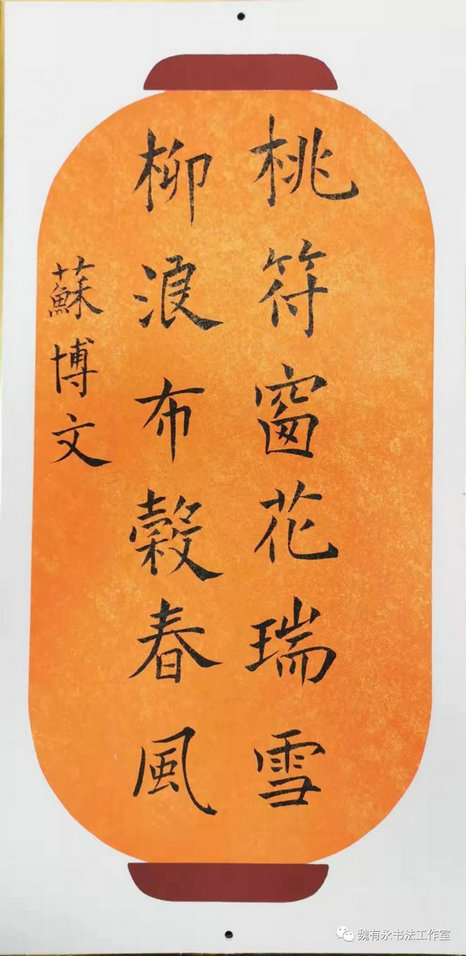 桃符窗花瑞雪
柳浪布穀春風
蘇博文
魏有永书法工作室